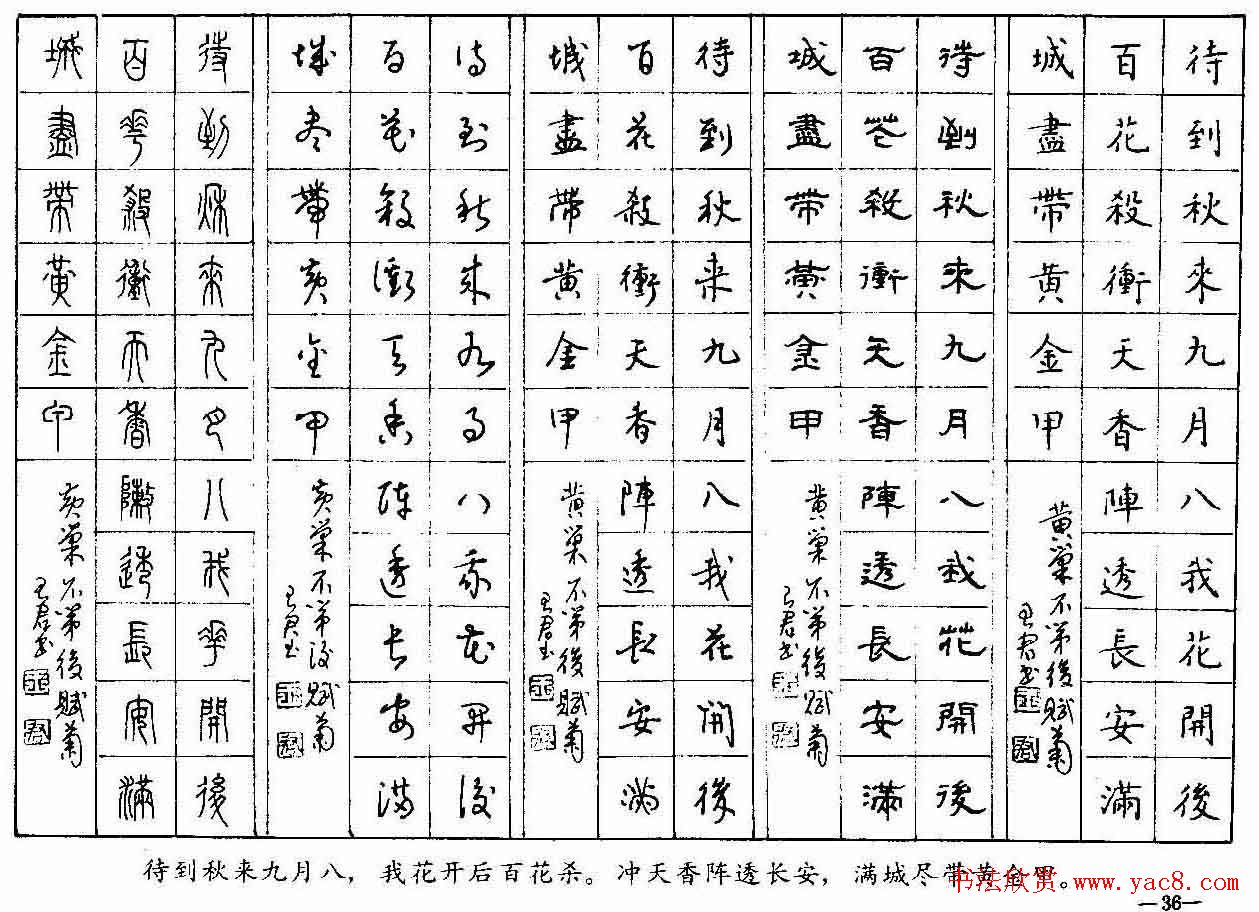 待到秋來九月八我花開後
百花殺衝天香陣透長安滿
城盡帶黄金甲
黄巢不第後賦菊
王君书
待到秋來九月八我花開後
百花殺衝天香陣透長安滿
城盡帶黄金甲
黄巢不第後賦菊
王君书
待到秋来九月八我花開後
百花殺衝天香陣透長安滿
城盡帶黄金甲
黄巢不第後賦菊
王君书
待到秋来九月八我花開後
百花殺衝天香陣透長安滿
城尽帶黄金甲
黄巢不第後賦菊
王君书
待到秋來九月八我花開後
百花殺衝天香陣透長安滿
城盡帶黄金甲
黄巢不第後賦菊
王君书
待到秋来九月八，我花开后百花杀。冲天香阵透长安，满城尽带黄金甲。
书法欣赏 www.yac8.com
—36—